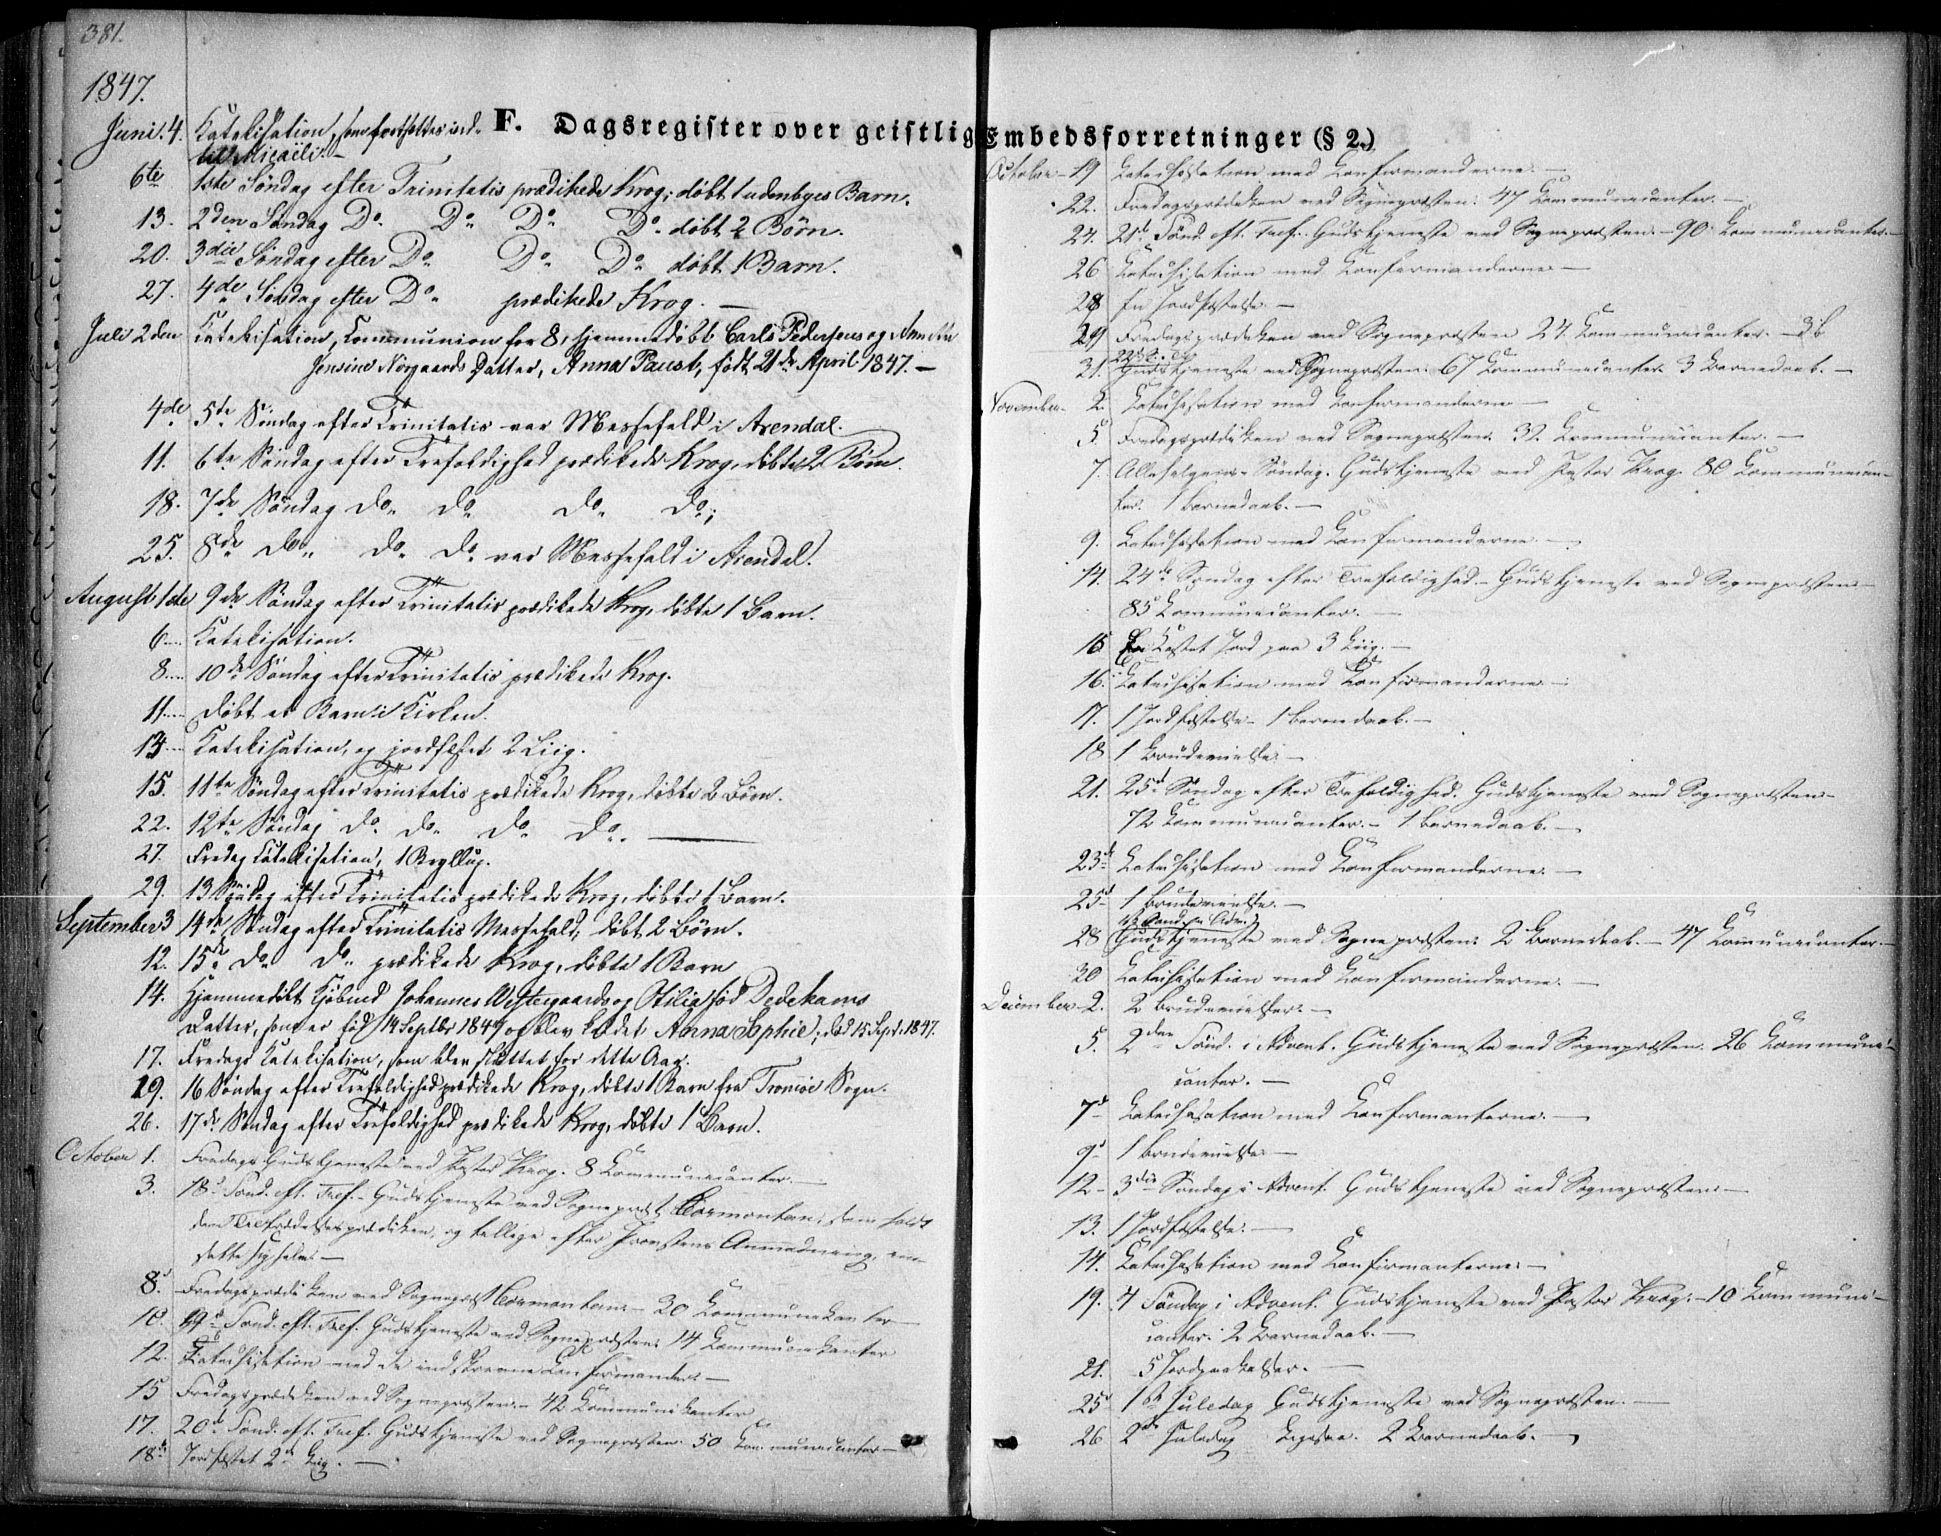 381.
1847.
F. Dagsregister over geistlig Embedsforretninger (§ 2.)
Juni. 4. Katekisation, som fortsættes ind-
til Micaëli. –
6te 1ste Söndag efter Trinitatis prædikede Krog; döbt 1 udenbyes Barn.
13. 2den Söndag Do Do Do Do döbt 2 Börn.
20. 3die Söndag efter Do Do Do döbt 1 Barn.
27. 4de Söndag efter Do prædikede Krog. –
Juli 2den Katekisation, Communion for 8, hjemmedöbt Carls Pedersens og
Jensine Nörgaards Datter, Anna Faust, födt 21de April 1847. –
4de 5te Söndag efter Trinitatis var Messefald i Arendal.
11. 6te Söndag efter Trefoldighed prædikede Krog, döbte 2 Börn.
18. 7de Söndag do do do do;
25. 8de do do do var Messefald i Arendal.
August 1ste 9de Söndag efter Trinitatis prædikede Krog, döbte 1 Barn.
6 Katekisation.
8 10de Söndag efter Trinitatis prædikede Krog.
11 döbt et Barn i Kirken.
13 Katekisation, og jordfæstet 2 Liig.
15. 11te Söndag efter Trinitatis prædikede Krog, döbte 2 Börn.
22. 12te Söndag do do do do.
27. Fredag Katekisation, 1 Bryllup.
29. 13 Söndag efter Trinitatis prædikede Krog, döbte 1 Barn.
September 3 14de Söndag efter Trinitatis Messefald, döbt 2 Börn.
12. 15de do do prædikede Krog, döbte 1 Barn
14. Hjemmedöbt Kjöbmd Johannes Westergaards og Otilia föd Dedekams
Datter, som er föd 14 Septbr 1847 og blev kaldet Anna Sophie; död 15 Sept: 1847.
17. Fredags Katekisation, som blev sluttet for dette Aar.
19. 16 Söndag efter Trefoldighed prædikede Krog, döbte 1 Barn fra Tromöe Sogn.
26. 17de Söndag efter Trefoldighed prædikede Krog, döbte 1 Barn.
October 1. Fredags Gudstjeneste ved Pastor Krog. 8 Communicanter. –
3. 18d Sönd. eft. Tref. – Gudstjeneste ved Sognepræst Hormontan, som holdt
dem Tiltrædelsesprædiken, og tillige efter Provstens Anmodning, en
dette
8. Fredagsprædiken ved Sognepræst Hormontan – 30 Communikanter
10. 19d Sönd. eft. Tref. Gudstjeneste ved Sognepræsten 14 Communikanter
12. Katechisation med de indskrevne Confirmander. –
15 Fredagsprædiken ved Sognepræsten. – 42 Communikanter
17. 20d Sönd. eft. Tref. Gudstjeneste ved Sognepræsten. 50 Communicanter –
18d Jordfæstet 2 Liig. –
October – 19 Catechisation med Confirmanderne. –
22. Fredagsprædiken ved Sognepræsten: 47 Communicanter. –
24. 21d Sönd. eft. Tref. Gudstjeneste ved Sognepræsten. – 90 Communicanter. –
26 Catechisation med Confirmanderne –
28 En Jordfæstelse. –
29 Fredagsprædiken ved Sognepræsten 24 Communicanter. –
31. Gudstjeneste ved Sognepræsten. 67 Communicanter 3 Barnedaab. –
November. 2. Catechisation med Confirmanderne –
5. Fredagsprædiken ved Sognepræsten. 32 Communicanter. –
7. Allehelgens-Söndag. Gudstjeneste ved Pastor Krog. 80 Communican-
ter. 1 Barnedaab. –
9. Catechisation med Confirmanderne. –
14. 24de Söndag efter Trefoldighed. – Gudstjeneste ved Sognepræsten –
85 Communicanter. –
15 Kastet Jord paa 3 Liig. –
16. Catechisation med Confirmanderne –
17. 1 Jordfæstelse – 1 Barnedaab. –
18 1 Brudevielse. –
21. 25d Söndag efter Trefoldighed. Gudstjeneste ved Sognepræsten –
72 Communicanter. – 1 Barnedaab. –
23d Catechisation med Confirmanderne. –
25d 1 Brudevielse. –
1st Sönd. i Adv.
28 Gudstjeneste ved Sognepræsten: 2 Barnedaab. – 47 Communicanter. –
30 Catechisation med Confirmanderne. –
December – 2. 2 Brudevielser. –
5. 2den Sönd. i Advent. Gudstjeneste ved Sognepræsten. 26 Communi-
canter. –
7d Catechisation med Confirmanterne. –
9d 1 Brudevielse –
12 – 3die Söndag i Advent. Gudstjeneste ved Sognepræsten –
13. 1 Jordfæstelse. –
14. Catechisation med Confirmanterne –
19. 4 Söndag i Advent. Gudstjeneste ved Pastor Krog. – 10 Communi-
canter: 2 Barnedaab. –
21. 5 Jordpaakastelser. –
25d 1st Juledag Gudstjeneste ved Sognepræsten. –
26 2d Juledag 2 Barnedaab. –